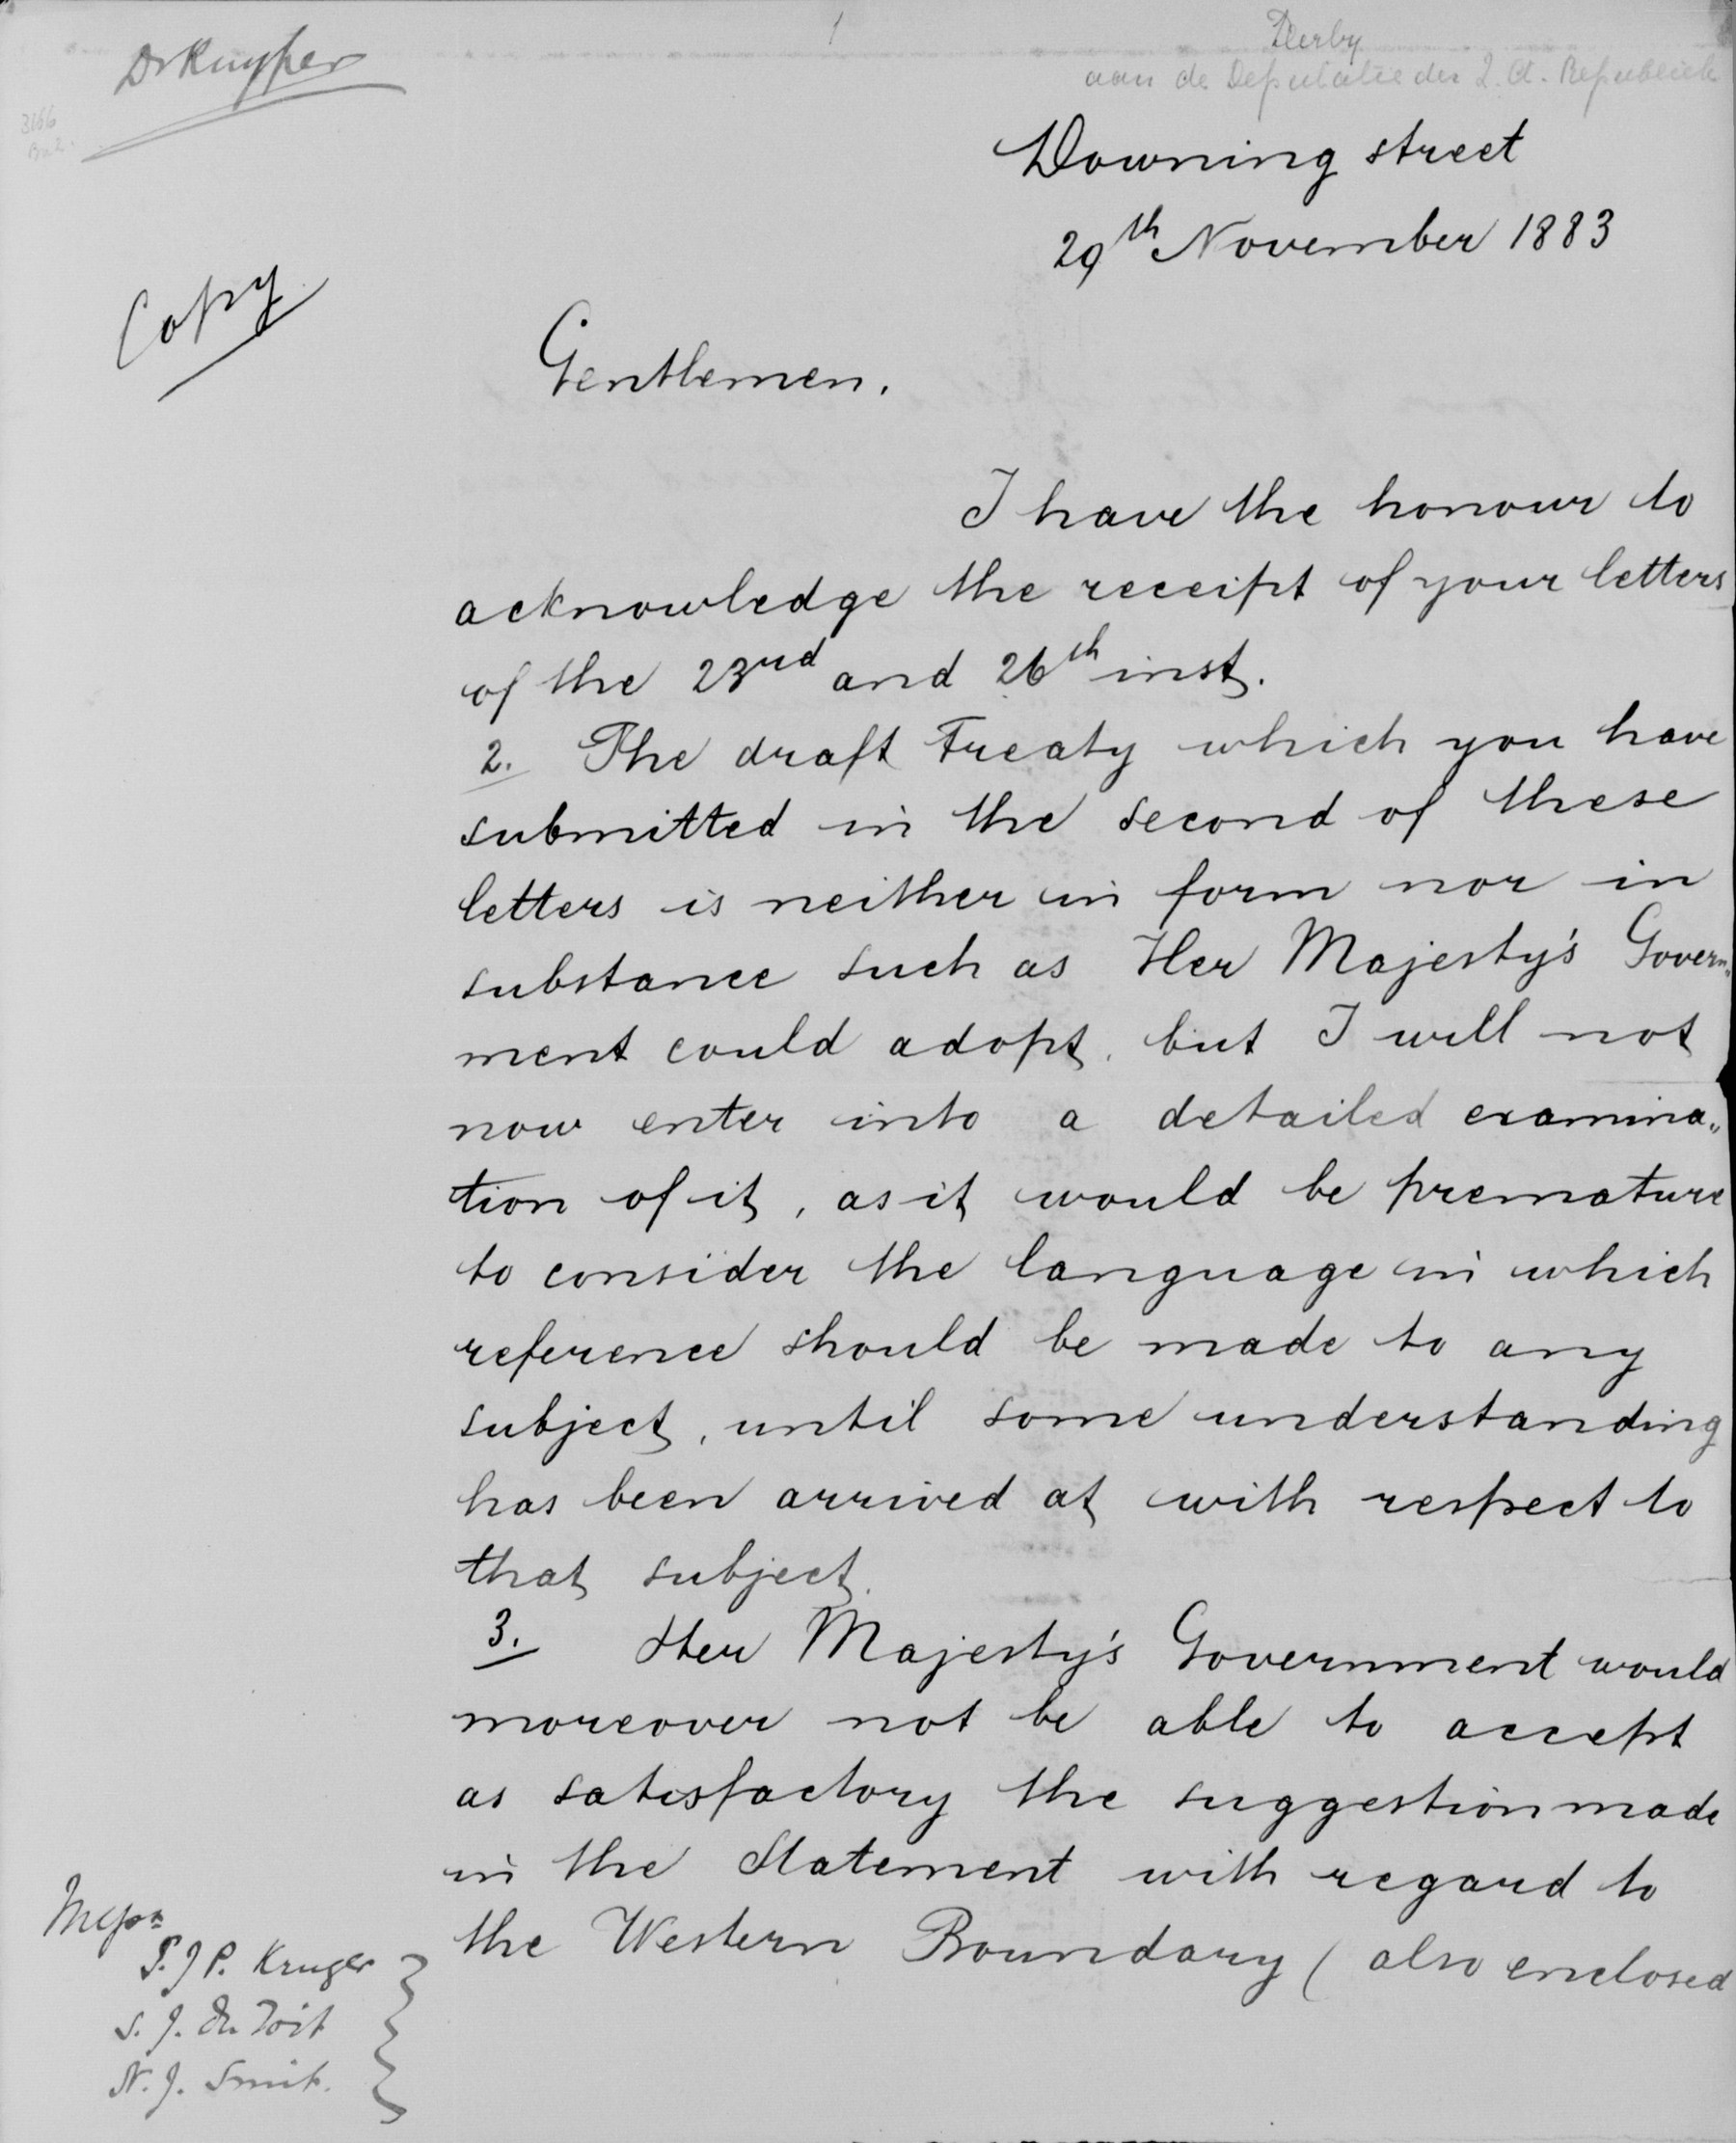 Dr Kuyper
1
Derby
aan de Deputatie der Z. A. Republiek
3166
Downing street
29th November 1883
Copy
Gentlemen.
I have the honour to
acknowledge the receipt of your letters
of the 23rd and 26th inst.
2. The draft Treaty which you have
submitted in the second of these
letters is neither in form nor in
substance such as Her Majesty's Govern„
ment could adopt, but I will not
now enter into a detailed examina„
tion of it, as it would be premature
to consider the language in which
reference should be made to any
subject, until some understanding
has been arrived at with respect to
that subject.
3. Her Majesty's Government would
moreover not be able to accept
as satisfactory the suggestion made
in the Statement with regard to
the Western Boundary (also enclosed
Messrs
S. J. P. Kruger
S. J. Du Toit
N. J. Smit.